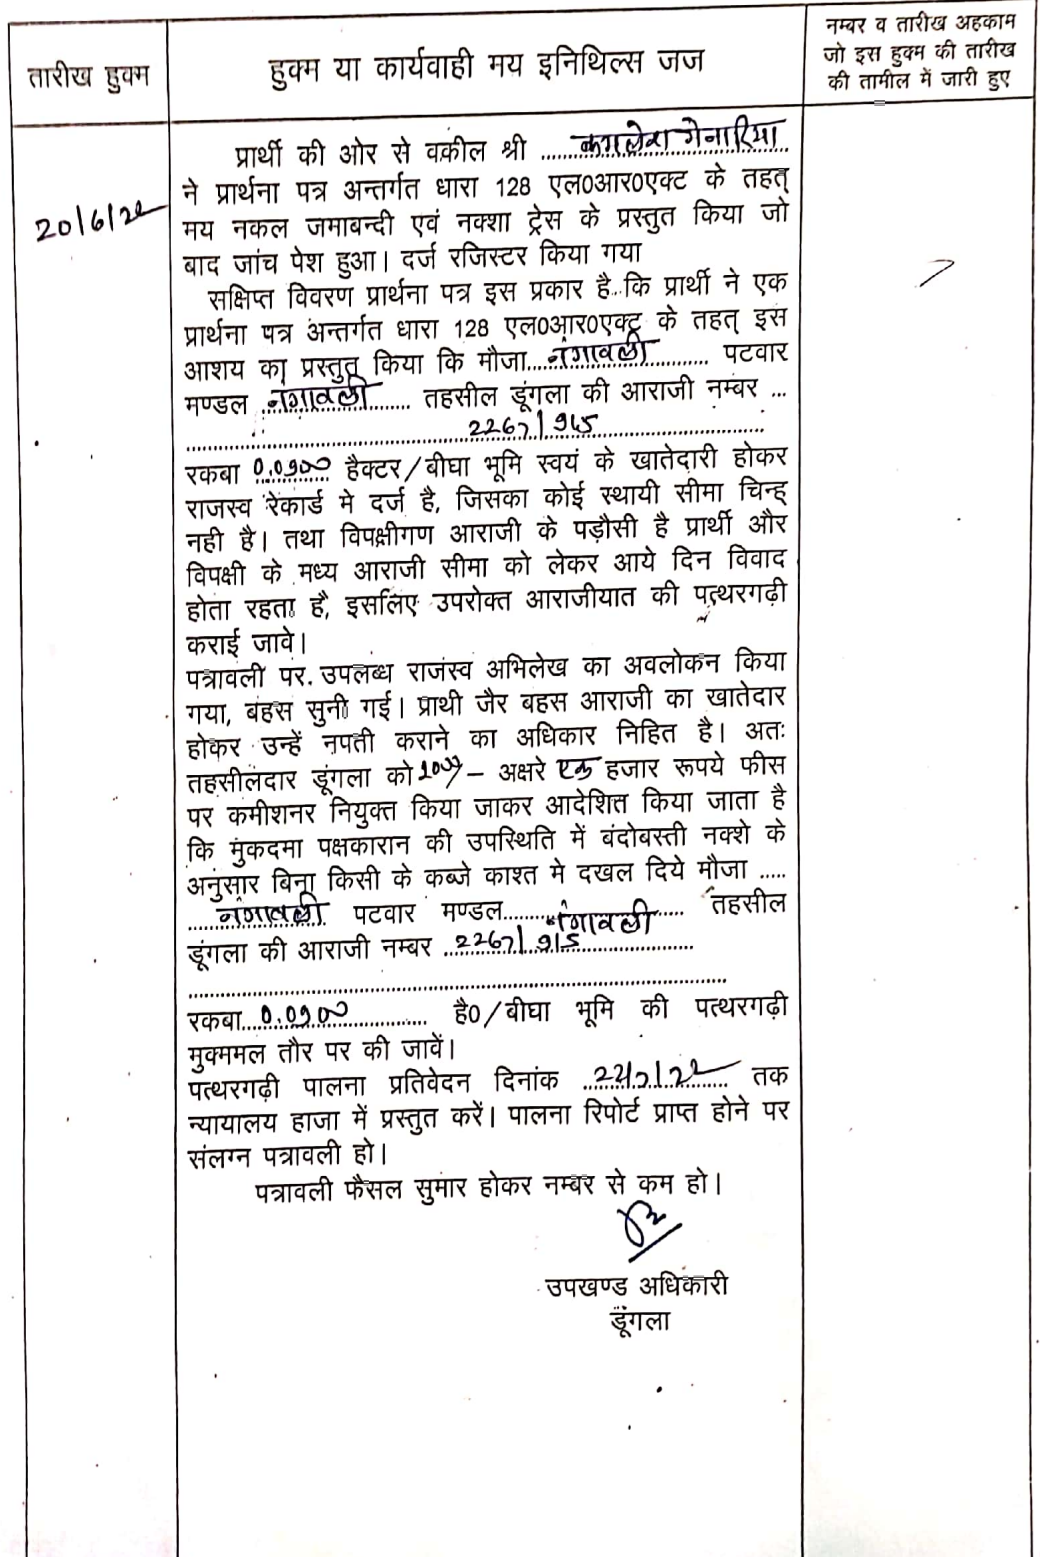 तारीख हुक्म
हुक्म या कार्यवाही मय इनिथिल्स जज
नम्बर व तारीख अहकाम
जो इस हुक्म की तारीख
की तामील में जारी हुए
20/6/22
प्रार्थी की ओर से वकील श्री ......................
ने प्रार्थना पत्र अन्तर्गत धारा 128 एल0आर0एक्ट के तहत्
मय नकल जमाबन्दी एवं नक्शा ट्रेस के प्रस्तुत किया जो
बाद जांच पेश हुआ। दर्ज रजिस्टर किया गया
सक्षिप्त विवरण प्रार्थना पत्र इस प्रकार है कि प्रार्थी ने एक
प्रार्थना पत्र अन्तर्गत धारा 128 एल0आर0एक्ट के तहत् इस
आशय का प्रस्तुत किया कि मौजा नंगावली पटवार
मण्डल नंगावली तहसील डूंगला की आराजी नम्बर ...
रकबा हैक्टर/बीघा भूमि स्वयं के खातेदारी होकर
राजस्व रेकार्ड मे दर्ज है, जिसका कोई स्थायी सीमा चिन्ह्
नही है। तथा विपक्षीगण आराजी के पड़ौसी है प्रार्थी और
विपक्षी के मध्य आराजी सीमा को लेकर आये दिन विवाद
होता रहता है, इसलिए उपरोक्त आराजीयात की पत्थरगढ़ी
कराई जावे।
पत्रावली पर उपलब्ध राजस्व अभिलेख का अवलोकन किया
गया, बहस सुनी गई। प्राथी जैर बहस आराजी का खातेदार
होकर उन्हें नपती कराने का अधिकार निहित है। अतः
तहसीलदार डूंगला को – अक्षरे एक हजार रूपये फीस
पर कमीशनर नियुक्त किया जाकर आदेशित किया जाता है
कि मुंकदमा पक्षकारान की उपस्थिति में बंदोबस्ती नक्शे के
अनुसार बिना किसी के कब्जे काश्त मे दखल दिये मौजा .....
नंगावली पटवार मण्डल नंगावली तहसील
डूंगला की आराजी नम्बर
रकबा है0/बीघा भूमि की पत्थरगढ़ी
मुक्ममल तौर पर की जावें।
पत्थरगढ़ी पालना प्रतिवेदन दिनांक 22/7/22 तक
न्यायालय हाजा में प्रस्तुत करें। पालना रिपोर्ट प्राप्त होने पर
संलग्न पत्रावली हो।
पत्रावली फैसल सुमार होकर नम्बर से कम हो।
उपखण्ड अधिकारी
डूंगला